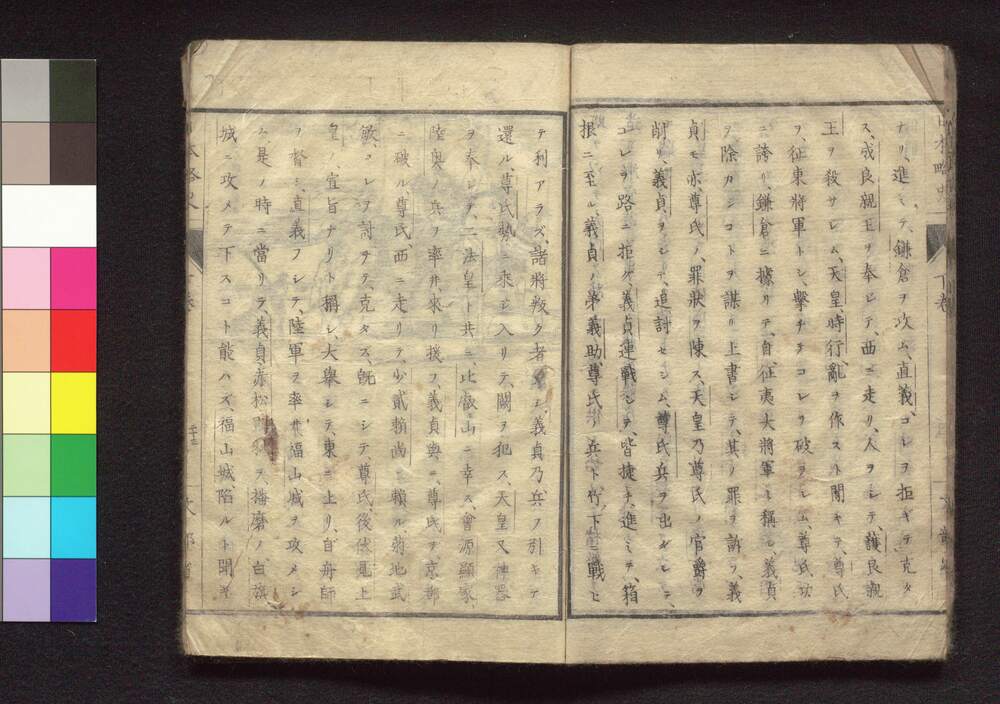 ナリ、進ミテ、鎌倉ヲ攻ム、直義、コレヲ拒ギテ克タ
ス、成良親王ヲ奉ジテ、西ニ走リ、人ヲシテ、護良親
王ヲ殺サシム、天皇、時行、亂ヲ作スト聞キテ、尊氏
ヲ、征東將軍トシ、撃チテコレヲ破ラシム、尊氏功
ニ誇リ、鎌倉ニ據リテ、自、征夷大將軍ト稱シ、義貞
ヲ除カンコトヲ謀リ上書シテ、其ノ罪ヲ訴フ、義
貞モ亦、尊氏ノ罪狀ヲ陳ス、天皇乃尊氏ノ官爵ヲ
削リ、義貞ヲシテ、追討セシム、尊氏兵ヲ出ダシテ、
コレヲ路ニ拒グ、義貞連戰シテ、皆捷チ、進ミテ、箱
根ニ至ル、義貞ノ弟義助、尊氏ノ兵ト竹下ニ戰ヒ
テ利アラズ、諸將叛ク者多シ、義貞乃、兵ヲ引キテ
還ル、尊氏勢ニ乘ジ入リテ、闕ヲ犯ス、天皇又神器
ヲ奉ジテ、二法皇ト共ニ、比叡山ニ幸ス、會源顯家、
陸奥ノ兵ヲ率井來リ援フ、義貞與ニ、尊氏ヲ京都
ニ破ル、尊氏、西ニ走リテ、少貳賴尚ニ賴ル、菊地武
敏、コレヲ討チテ、克タス、既ニシテ、尊氏、後伏見上
皇ノ、宣旨ナリト稱シ、大擧シテ、東ニ上リ、自舟師
ヲ督シ、直義ヲシテ、陸軍ヲ率井福山城ヲ攻メシ
ム、是ノ時ニ當リテ、義貞、赤松則村ヲ、播磨ノ白旗
城ニ攻メテ下スコト能ハズ、福山城陷ルト聞キ